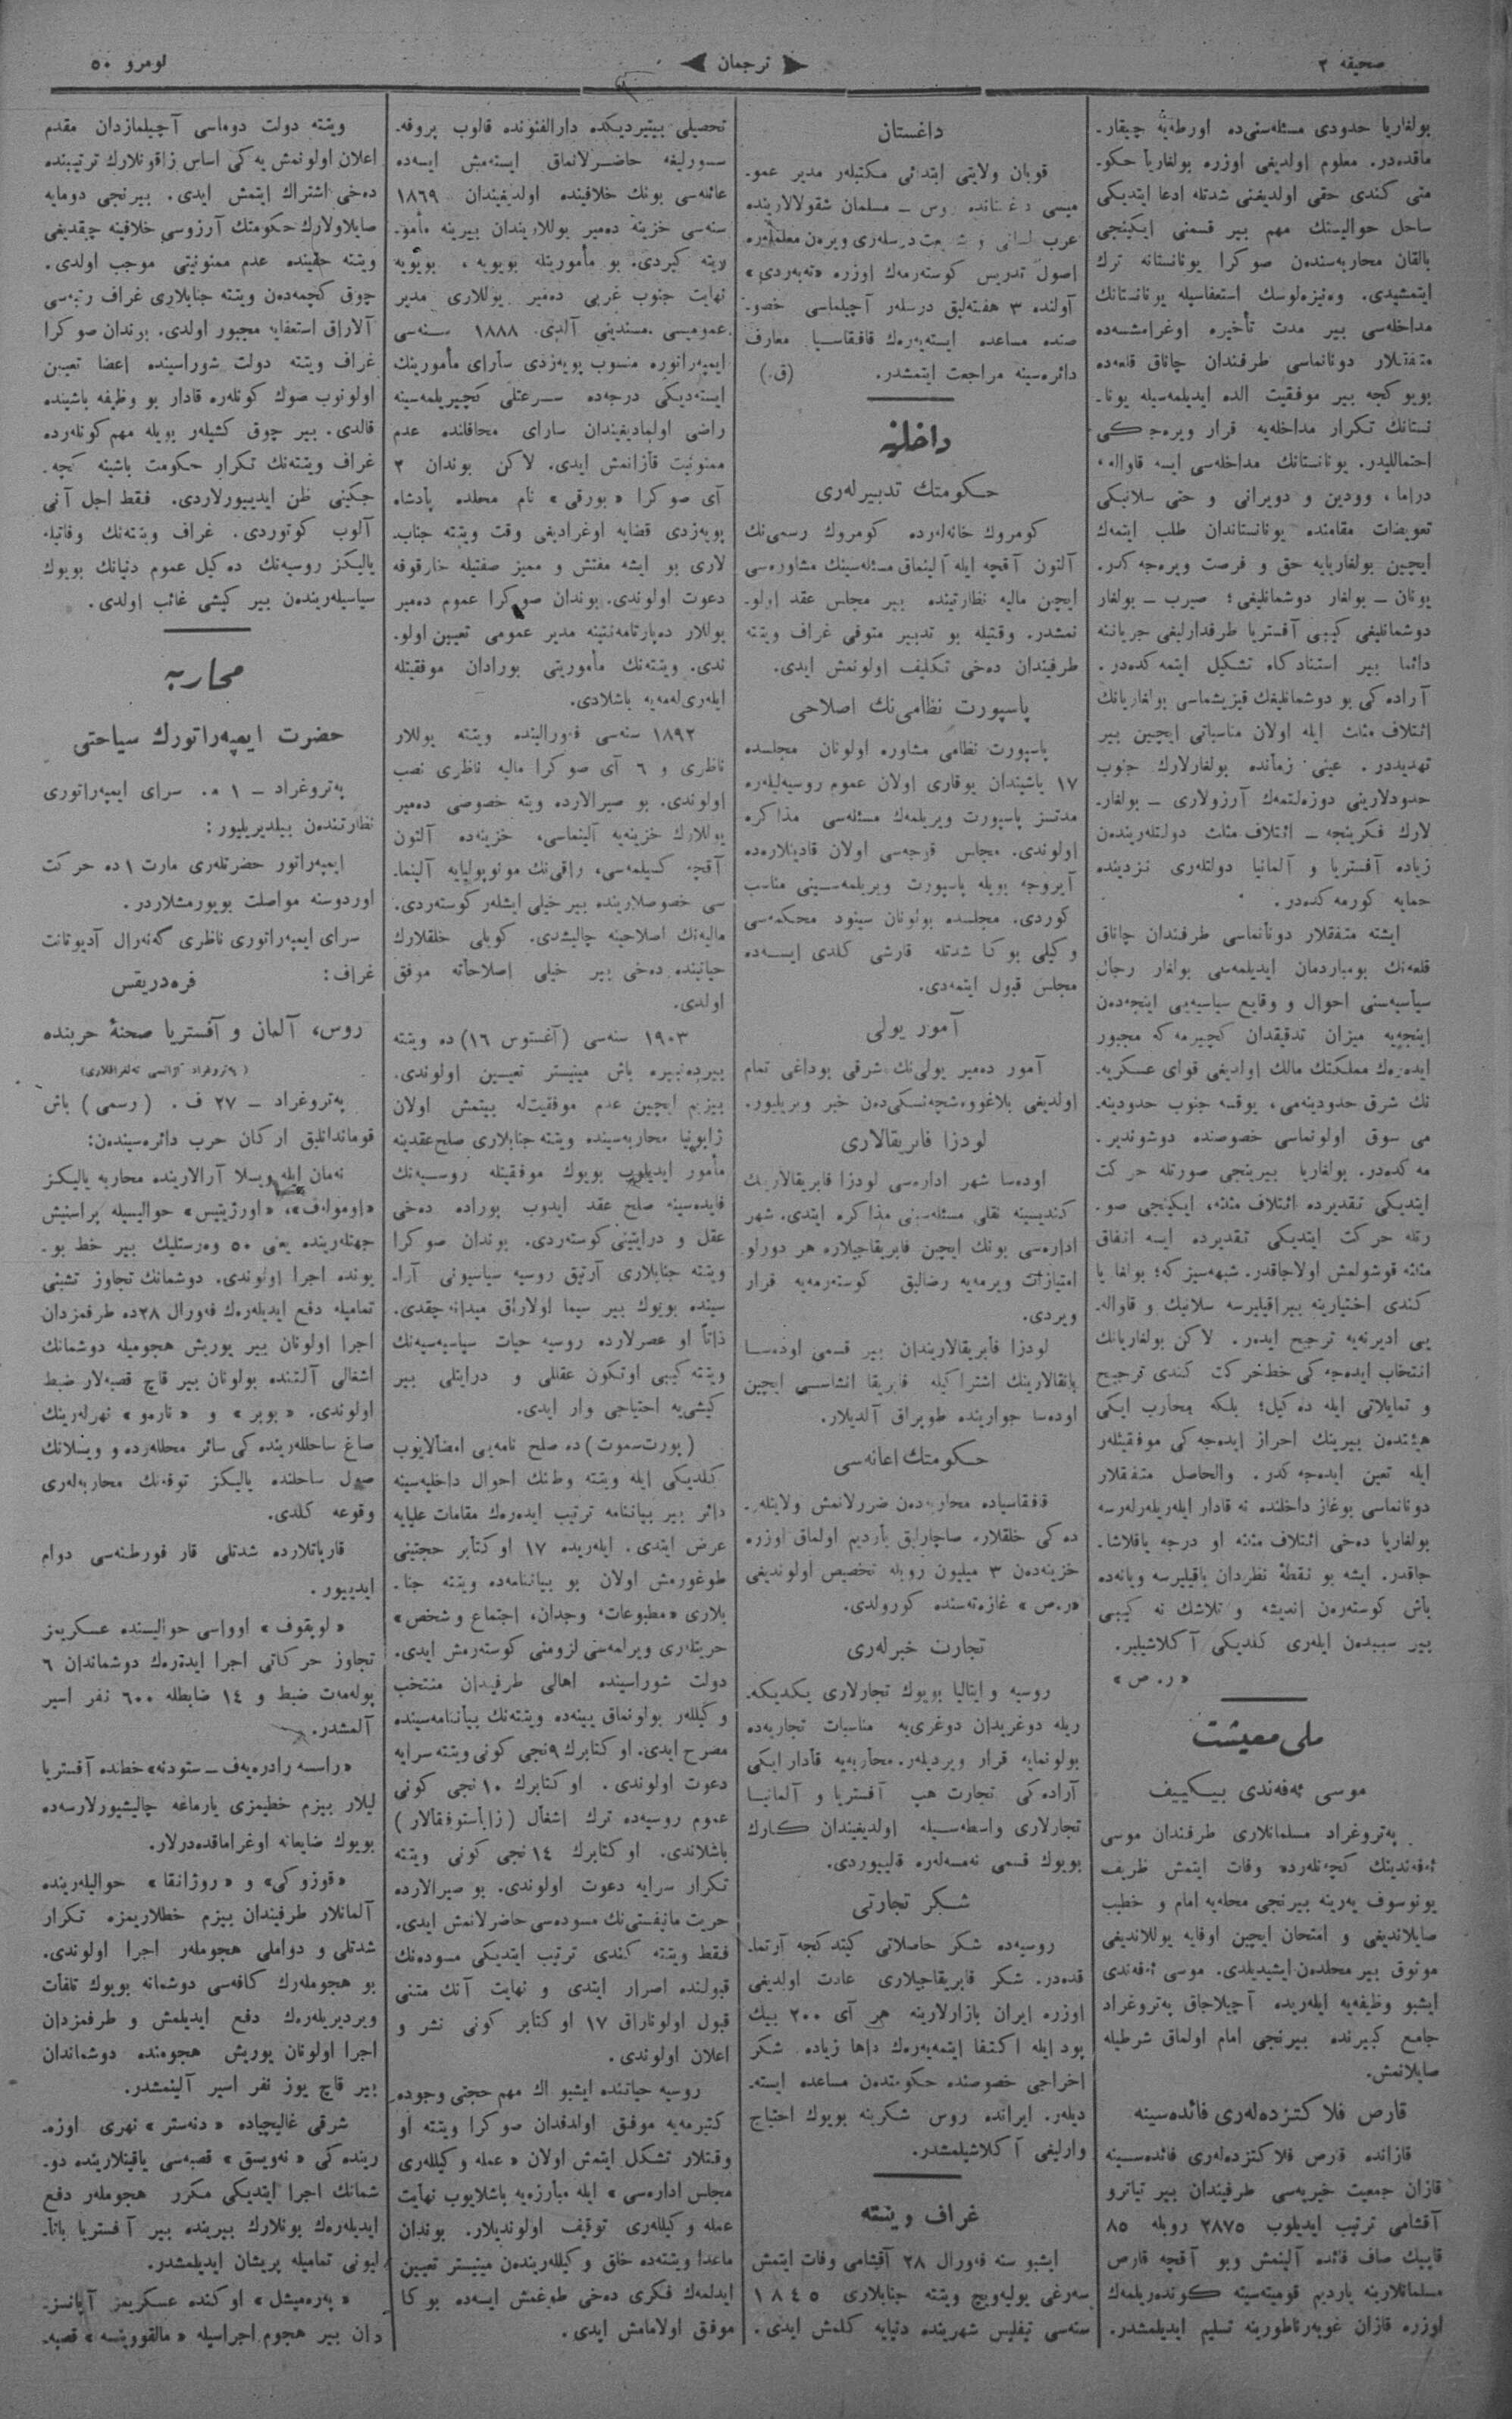 صحیفه ٢
ترجمان
نومرو ٥٠
بولغاریا حدودی مسئله‌سنی‌ده اورطه‌یه چیقار-
ماقده‌در. معلوم اولدیغی اوزره بولغاریا حکو-
متی کندی حقی اولدیغنی شدتله ادعا ایتدیکی
ساحل حوالیسنك مهم بیر قسمنی ایکینجی
بالقان محاربه‌سندن صوکرا یونانستانه ترك
ایتمشیدی. وه‌نیزه‌لوسك استعفاسیله یونانستانك
مداخله‌سی بیر مدت تأخیره اوغرامشسه‌ده
متفقلار دونانماسی طرفندان چاناق قلعه‌ده
بویوکجه بیر موفقیت الده ایدیلمه‌سیله یونا-
نستانك تکرار مداخله‌یه قرار ویره‌جکی
احتمالیدر. یونانستانك مداخله‌سی ایسه قاوالا،
دراما، وودین و دویرانی و حتی سلانیکی
تعویضات مقامنده یونانستاندان طلب ایتمه‌ك
ایچین بولغاریایه حق و فرصت ویره‌جه‌کدر.
یونان ـ بولغار دوشمانلیغی؛ صیرب ـ بولغار
دوشمانلیغی کیبی آفستریا طرفدارلیغی جریاننه
دائما بیر استنادگاه تشکیل ایتمه‌کده‌در.
آراده‌کی بو دوشمانلیغك قیزیشماسی بولغاریانك
ائتلاف مثلث ایله اولان مناسباتی ایچین بیر
تهدیددر. عینی زمانده بولغارلارك جنوب
حدودلارینی دوزه‌لتمه‌ك آرزولاری ـ بولغار-
لارك فکرینجه ـ ائتلاف مثلث دولتله‌ریندن
زیاده آفستریا و آلمانیا دولتله‌ری نزدینده
حمایه کورمه‌کده‌در.
ایشته متفقلار دونانماسی طرفندان چاناق
قلعه‌نك بومباردمان ایدیلمه‌سی بولغار رجال
سیاسیه‌سنی احوال و وقایع سیاسیه‌یی اینجه‌دن
اینجه‌یه میزان تدقیقدان کچیرمه‌که مجبور
ایده‌رك مملکتك مالك اولدیغی قوای عسکریه-
نك شرق حدودینه‌می، یوقسه جنوب حدودینه-
می سوق اولونماسی خصوصنده دوشوندیر-
مه‌کده‌در. بولغاریا بیرینجی صورتله حرکت
ایتدیکی تقدیرده ائتلاف مثلثه، ایکینجی صو-
رتله حرکت ایتدیکی تقدیرده ایسه اتفاق
مثلثه قوشولمش اولاجاقدر. شبهه‌سیز که؛ بولغاریا
کندی اختیارینه بیراقیلیرسه سلانیك و قاواله-
یی ادیرنه‌یه ترجیح ایده‌ر. لاکن بولغاریانك
انتخاب ایده‌جه‌کی خط حرکت کندی ترجیح
و تمایلاتی ایله ده‌کیل؛ بلکه محارب ایکی
هیئتدن بیرینك احراز ایده‌جه‌کی موفقیتله‌ر
ایله تعین ایده‌جه‌کدر. والحاصل متفقلار
دونانماسی بوغاز داخلنده نه قادار ایله‌ریله‌رله‌رسه
بولغاریا ده‌خی ائتلاف مثلثه او درجه یاقلاشا-
جاقدر. ایشه بو نقطهٔ نظردان باقیلیرسه ویانه‌ده
باش کوسته‌ره‌ن اندیشه و تلاشك نه کیبی
بیر سببدن ایله‌ری کلدیکی آکلاشیلیر.
« ر. ص »
ملی معیشت
موسی ئه‌فه‌ندی بیکییف
په‌تروغراد مسلمانلاری طرفندان موسی
ئه‌فه‌ندینك کچه‌نله‌رده وفات ایتمش ظریف
یونوسوف یه‌رینه بیرنجی محله‌یه امام و خطیب
صایلاندیغی و امتحان ایچین اوفایه یوللاندیغی
موثوق بیر محلدن ایشیدیلدی. موسی ئه‌فه‌ندی
ایشبو وظیفه‌یه ایله‌ریده آچیلاجاق په‌تروغراد
جامع کبیرنده بیرنجی امام اولماق شرطیله
صایلانمش.
قارص فلاکتزده‌له‌ری فائده‌سینه
قازانده قارص فلاکتزده‌له‌ری فائده‌سینه
قازان جمعیت خیریه‌سی طرفیندان بیر تیاترو
آقشامی ترتیب ایدیلوب ٢٨٧٥ روبله ٨٥
قاپیك صاف فائده آلینمش وبو آقچه قارص
مسلمانلارینه یاردیم قومیته‌سینه کونده‌ریلمه‌ك
اوزره قازان غوبه‌رناطورینه تسلیم ایدیلمشدر.
داغستان
قوبان ولایتی ابتدائی مکتبله‌ر مدیر عمو-
میسی داغستانده روس ـ مسلمان شقولالارینده
عرب لسانی و شریعت درسله‌ری ویره‌ن معلمله‌ره
اصول تدریس کوسته‌رمه‌ك اوزره «ته‌به‌ردی»
آولنده ٣ هفته‌لیق درسله‌ر آچیلماسی خصو-
صنده مساعده ایسته‌یه‌ره‌ك قافقاسیا معارف
دائره‌سینه مراجعت ایتمشدر. (ق.)
داخلیه
حکومتك تدبیرله‌ری
کومروك خانه‌له‌رده کومروك رسمی‌نك
آلتون آقچه ایله آلینماق مسئله‌سینك مشاوره‌سی
ایچن مالیه نظارتینده بیر مجلس عقد اولو-
نمشدر. وقتیله بو تدبیر متوفی غراف ویتته
طرفیندان ده‌خی تکلیف اولونمش ایدی.
پاسپورت نظامی‌نك اصلاحی
پاسپورت نظامی مشاوره اولونان مجلسده
١٧ یاشیندان یوقاری اولان عموم روسیه‌لیله‌ره
مدتسز پاسپورت ویریلمه‌ك مسئله‌سی مذاکره
اولوندی. مجلس قوجه‌سی اولان قادینلاره‌ده
آیروجه بویله پاسپورت ویریلمه‌سینی مناسب
کوردی. مجلسده بولونان سینود محکمه‌سی
وکیلی بوکا شدتله قارشی کلدی ایسه‌ده
مجلس قبول ایتمه‌دی.
آمور یولی
آمور ده‌میر یولی‌نك شرقی بوداغی تمام
اولدیغی بلاغووه‌شچه‌نسکی‌دن خبر ویریلیور.
لودزا فابریقالاری
اوده‌سا شهر اداره‌سی لودزا فابریقالارینك
کندیسینه نقلی مسئله‌سینی مذاکره ایتدی. شهر
اداره‌سی بونك ایچین فابریقاجیلاره هر دورلو
امتیازات ویرمه‌یه رضالیق کوسته‌رمه‌یه قرار
ویردی.
لودزا فابریقالاریندان بیر قسمی اوده‌سا
بانقالارینك اشتراکیله فابریقا انشاسی ایچین
اوده‌سا جوارینده طوپراق آلدیلار.
حکومتك اعانه‌سی
قافقاسیاده محاربه‌دن ضررلانمش ولایتله‌ر-
ده‌کی خلقلاره صاچارلیق یاردیم اولماق اوزره
خزینه‌دن ٣ میلیون روبله تخصیص اولوندیغی
«ر.ص» غازه‌ته‌سنده کورولدی.
تجارت خبرله‌ری
روسیه و ایتالیا بویوك تجارلاری یکدیکه-
ریله دوغریدان دوغری‌یه مناسبات تجاریه‌ده
بولونمایه قرار ویردیله‌ر. محاربه‌یه قادار ایکی
آراده‌کی تجارت هپ آفستریا و آلمانیا
تجارلاری واسطه‌سیله اولدیغیندان کارك
بویوك قسمی نه‌مسه‌له‌ره قالیوردی.
شکر تجارتی
روسیه‌ده شکر حاصلاتی کیتدکجه آرتما-
قده‌در. شکر فابریقاجیلاری عادت اولدیغی
اوزره ایران بازارلارینه هر آی ٢٠٠ بیك
پود ایله اکتفا ایتمه‌یه‌ره‌ك داها زیاده شکر
اخراجی خصوصنده حکومتدن مساعده ایسته-
دیله‌ر. ایرانده روس شکرینه بویوك احتیاج
وارلیغی آکلاشیلمشدر.
غراف ویتته
ایشبو سنه فه‌ورال ٢٨ آقشامی وفات ایتمش
سه‌رغی یولیه‌ویچ ویتته جنابلاری ١٨٤٥
سنه‌سی تیفلیس شهرینده دنیایه کلمش ایدی.
تحصیلی بیتیردیکده دارالفنونده قالوب پروفه-
سورلیغه حاضرلانماق ایسته‌مش ایسه‌ده
عائله‌سی بونك خلافینده اولدیغیندان ١٨٦٩
سنه‌سی خزینه ده‌میر یوللاریندان بیرینه مأمو-
ریته کیردی. بو مأموریتله بویویه، بویویه
نهایت جنوب غربی ده‌میر یوللاری مدیر
عمومیسی مسندینی آلدی. ١٨٨٨ سنه‌سی
ایمپه‌راتوره منسوب پویه‌زدی سارای مأمورینك
ایسته‌دیکی درجه‌ده سرعتلی کچیریلمه‌سینه
راضی اولمادیغیندان سارای محافلنده عدم
ممنونیت قازانمش ایدی. لاکن بوندان ٢
آی صوکرا « بورقی » نام محلده پادشاه
پویه‌زدی قضایه اوغرادیغی وقت ویتته جناب-
لاری بو ایشه مفتش و ممیز صفتیله خارقوفه
دعوت اولوندی. بوندان صوکرا عموم ده‌میر
یوللار ده‌پارتامه‌نتینه مدیر عمومی تعیین اولو-
ندی. ویتته‌نك مأموریتی بورادان موفقیتله
ایله‌ری‌له‌مه‌یه باشلادی.
١٨٩٢ سنه‌سی فه‌ورالینده ویتته یوللار
ناظری و ٦ آی صوکرا مالیه ناظری نصب
اولوندی. بو صیرالارده ویتته خصوصی ده‌میر
یوللارك خزینه‌یه آلینماسی، خزینه‌ده آلتون
آقچه کسیلمه‌سی، راقی‌نك مونوپولیایه آلینما-
سی خصوصلارینده بیر خیلی ایشله‌ر کوسته‌ردی.
مالیه‌نك اصلاحینه چالیشدی. کویلی خلقلارك
حیاتینده ده‌خی بیر خیلی اصلاحاته موفق
اولدی.
١٩٠٣ سنه‌سی (آغستوس ١٦) ده ویتته
بیردنبیره باش مینیستر تعیین اولوندی.
بیزیم ایچین عدم موفقیتله بیتمش اولان
ژاپونیا محاربه‌سینده ویتته جنابلاری صلح عقدینه
مأمور ایدیلوب بویوك موفقیتله روسیه‌نك
فایده‌سینه صلح عقد ایدوب بوراده ده‌خی
عقل و درایتینی کوسته‌ردی. بوندان صوکرا
ویتته جنابلاری آرتیق روسیه سیاسیونی آرا-
سینده بویوك بیر سیما اولاراق میدانه چقدی.
ذاتاً او عصرلارده روسیه حیات سیاسیه‌سینه‌نك
ویتته کیبی اوتکون عقللی و درایتلی بیر
کیشی‌یه احتیاجی وار ایدی.
(پورت‌سموت) ده صلح نامه‌یی امضالایوب
کلدیکی ایله ویتته وطنك احوال داخلیه‌سینه
دائر بیر بیاننامه ترتیب ایده‌ره‌ك مقامات علیایه
عرض ایتدی. ایله‌ریده ١٧ اوکتابر حجتینی
طوغورمش اولان بو بیاننامه‌ده ویتته جنا-
بلاری «مطبوعات، وجدان، اجتماع و شخص»
حریتله‌ری ویرلمه‌سی لزومنی کوسته‌رمش ایدی.
دولت شوراسینده اهالی طرفیندان منتخب
وکیلله‌ر بولونماق بینه‌ده ویتته‌نك بیاننامه‌سینده
مصرح ایدی. اوکتابرك ٩نجی کونی ویتته سرایه
دعوت اولوندی. اوکتابرك ١٠نجی کونی
عموم روسیه‌ده ترك اشغال (زاباستوفقالار)
باشلاندی. اوکتابرك ١٤نجی کونی ویتته
تکرار سرایه دعوت اولوندی. بو صیرالارده
حریت مانیفستی‌نك مسوده‌سی حاضرلانمش ایدی.
فقط ویتته کندی ترتیب ایتدیکی مسوده‌نك
قبولنده اصرار ایتدی و نهایت آنك متنی
قبول اولوناراق ١٧ اوکتابر کونی نشر و
اعلان اولوندی.
روسیه حیاتنده ایشبو اك مهم حجتی وجوده
کتیرمه‌یه موفق اولدقدان صوکرا ویتته او
وقتلار تشکل ایتمش اولان «عمله وکیلله‌ری
مجلس اداره‌سی» ایله مبارزه‌یه باشلایوب نهایت
عمله وکیلله‌ری توقیف اولوندیلار. بوندان
ماعدا ویتته‌ده خلق وکیلله‌ریندن مینیستر تعیین
ایدلمه‌ك فکری ده‌خی طوغمش ایسه‌ده بوکا
موفق اولامامش ایدی.
ویتته دولت دوماسی آچیلمازدان مقدم
اعلان اولونمش یه‌کی اساس زاقونلارك ترتیبنده
ده‌خی اشتراك ایتمش ایدی. بیرنجی دومایه
صایلاولارك حکومتك آرزوسی خلافینه چقدیغی
ویتته حقینده عدم ممنونیتی موجب اولدی.
چوق کچمه‌دن ویتته جنابلاری غراف رتبه‌سی
آلاراق استعفایه مجبور اولدی. بوندان صوکرا
غراف ویتته دولت شوراسینده اعضا تعیین
اولونوب صوك کونله‌ره قادار بو وظیفه باشینده
قالدی. بیر چوق کشیله‌ر بویله مهم کونله‌رده
غراف ویتته‌نك تکرار حکومت باشینه کچه-
جکینی ظن ایدییورلاردی. فقط اجل آنی
آلوب کوتوردی. غراف ویتته‌نك وفاتیله
یالیکز روسیه‌نك ده‌کیل عموم دنیانك بویوك
سیاسیله‌ریندن بیر کیشی غائب اولدی.
محاربه
حضرت ایمپه‌راتورك سیاحتی
په‌تروغراد ـ ١ م. سرای ایمپه‌راتوری
نظارتندن بیلدیریلیور:
ایمپه‌راتور حضرتله‌ری مارت ١ده حرکت
اوردوسنه مواصلت بویورمشلاردر.
سرای ایمپه‌راتوری ناظری گه‌نه‌رال آدیوتانت
غراف: فره‌دریقس
روس، آلمان و آفستریا صحنهٔ حربنده
(په‌تروغراد آژانسی ته‌لغرافلاری)
په‌تروغراد ـ ٢٧ ف. (رسمی) باش
قوماندانلیق ارکان حرب دائره‌سیندن:
نه‌مان ایله ویسلا آرالارینده محاربه یالیکز
«اوموله‌ف»، «اورژیتیس» حوالیسیله پراسنیش
جهتله‌رینده یعنی ٥٠ وه‌رستلیك بیر خط بو-
یونده اجرا اولوندی. دوشمانك تجاوز تشبثی
تمامیله دفع ایدیله‌ره‌ك فه‌ورال ٢٨ده طرفمزدان
اجرا اولونان بیر یوریش هجومیله دوشمانك
اشغالی آلتنده بولونان بیر قاچ قصبه‌لار ضبط
اولوندی. «بوبر» و «نارمو» نهرله‌رینك
صاغ ساحلله‌رینده‌کی سائر محلله‌رده و ویسلانك
صول ساحلنده یالیکز توقه‌نك محاربه‌له‌ری
وقوعه کلدی.
قارپاتلارده شدتلی قار فورطنه‌سی دوام
ایدییور.
«لوپقوف» اوواسی حوالیسنده عسکریمز
تجاوز حرکاتی اجرا ایده‌ره‌ك دوشماندان ٦
پوله‌مه‌ت ضبط و ١٤ ضابطله ٦٠٠ نفر اسیر
آلمشدر.
«راسسه رادره‌یه‌ف ـ ستودنه» خطنده آفستریا
لیلار بیزم خطیمزی یارماغه چالیشیورلارسه‌ده
بویوك ضایعاته اوغراماقده‌درلار.
«قوزوکی» و «روژانقا» حوالیله‌رینده
آلمانلار طرفیندان بیزم خطلاریمزه تکرار
شدتلی و دواملی هجومله‌ر اجرا اولوندی.
بو هجومله‌رك کافه‌سی دوشمانه بویوك تلفات
ویردیریله‌ره‌ك دفع ایدیلمش و طرفمزدان
اجرا اولونان یوریش هجومنده دوشماندان
بیر قاچ یوز نفر اسیر آلینمشدر.
شرقی غالیچیاده «دنه‌ستر» نهری اوزه-
رینده‌کی «نه‌ویسق» قصبه‌سی یاقینلارینده دو-
شمانك اجرا ایتدیکی مکرر هجومله‌ر دفع
ایدیله‌ره‌ك بونلارك بیرینده بیر آفستریا باتا-
لیونی تمامیله پریشان ایدیلمشدر.
«په‌ره‌میشل» اوکنده عسکریمز آپانسز-
دان بیر هجوم اجراسیله «مالقوویتسه» قصبه-